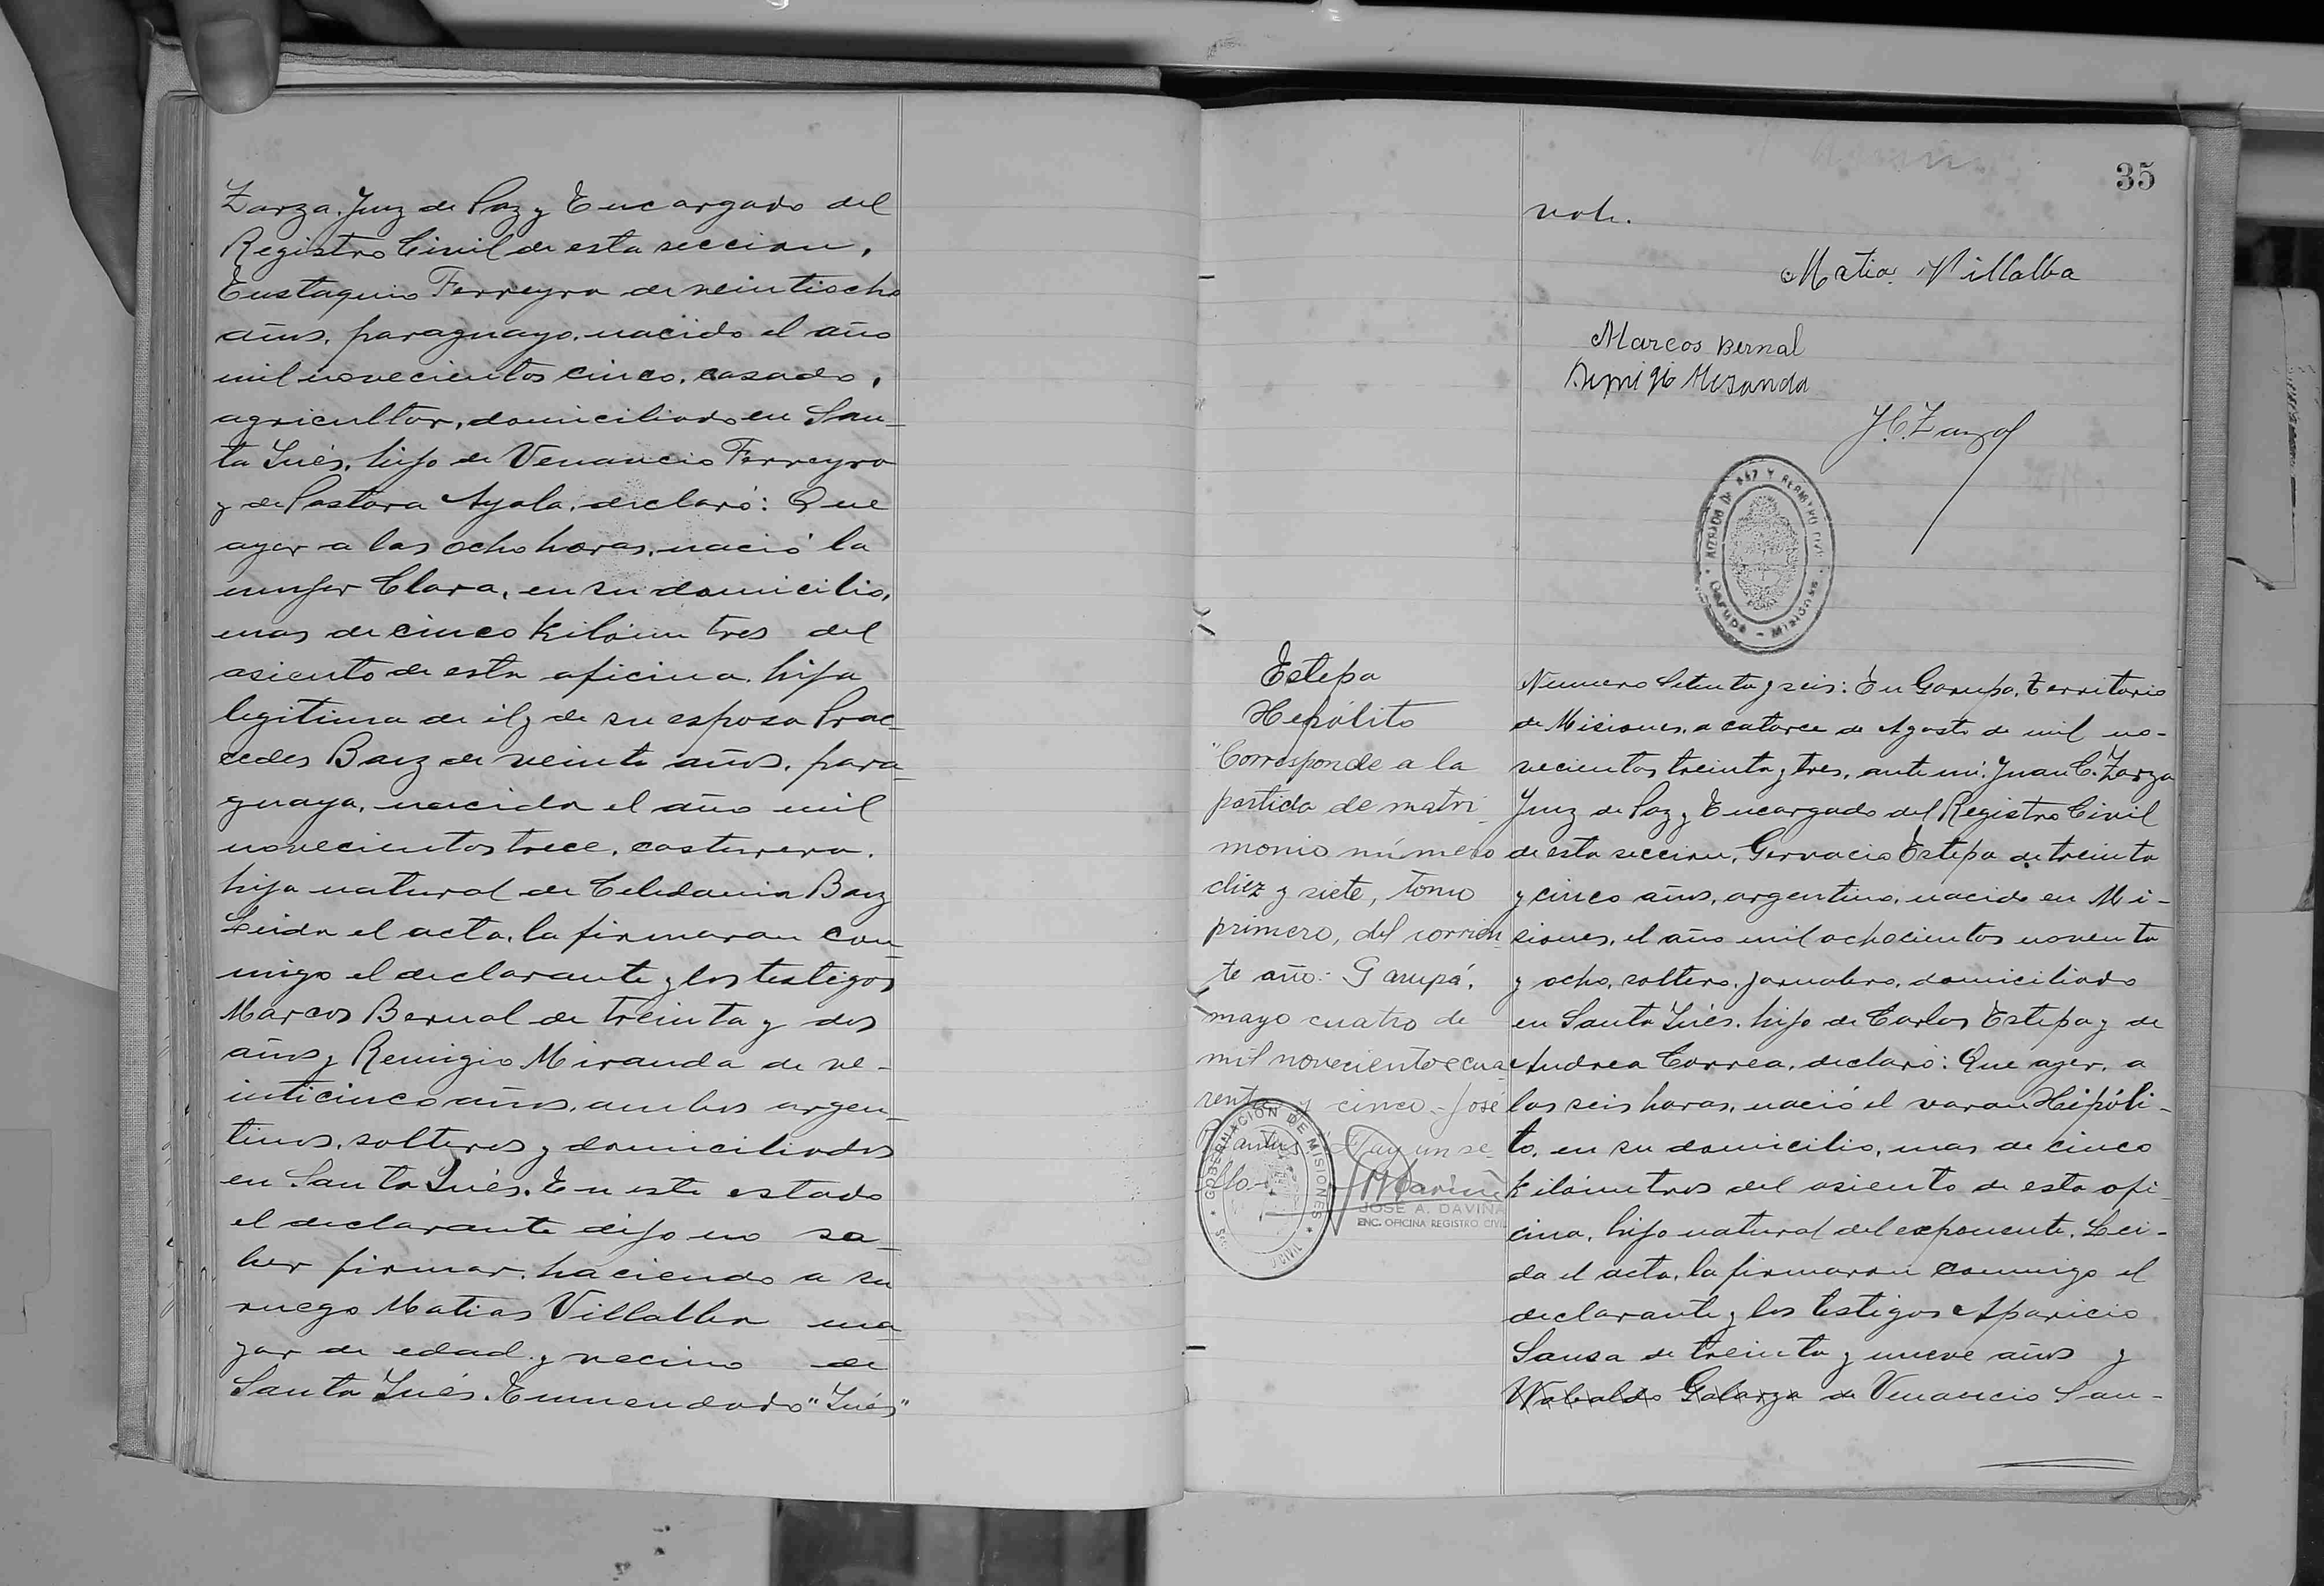 Zarza, Juez de Paz y Encargado del
Registro Civil de esta seccion,
Eustaquio Ferreyra de veintiocho
años, paraguayo, nacido el año
mil novecientos cinco, casado,
agricultor, domiciliado en San-
ta Inés, hijo de Venancio Ferreyra
y de Pastora Ayala, declaró: Que
ayer a las ocho horas, nació la
mujer Clara, en su domicilio,
mas de cinco kilómetros del
asiento de esta oficina, hija
legitima de él y de su esposa Prac-
cedes Baez de veinte años, para-
guaya, nacida el año mil
novecientos trece, costurera,
hija natural de Celedonia Baez
Leida el acta, la firmaran con-
migo el declarante y los testigos
Marcos Bernal de treinta y dos
años y Remigio Miranda de ve-
inticinco años, ambos argen-
tinos, solteros y domiciliados
en Santa Inés. En este estado
el declarante dijo no sa-
ber firmar, haciendo a su
ruego Matias Villalba ma-
yor de edad y vecino de
Santa Inés. Enmendado "Inés"
35
vale.
Matias Villalba
Marcos Bernal
Remigio Miranda
J.C. Zarza
JUZGADO DE PAZ Y REGISTRO CIVIL
Garupá - Misiones
Estepa
Hipólito
"Corresponde a la
partida de matri-
monio número
diez y siete, tomo
primero, del corrien-
te año. Garupá,
mayo cuatro de
mil novecientos cua-
renta y cinco. José
Hay un se-
llo-
GOBERNACION DE MISIONES
JOSE A. DAVIÑA
ENC. OFICINA REGISTRO CIVIL
Numero Setenta y seis: En Garupa, Territorio
de Misiones, a catorce de Agosto de mil no-
vecientos treinta y tres, ante mi: Juan C. Zarza
Juez de Paz y Encargado del Registro Civil
de esta seccion, Gervacio Estepa de treinta
y cinco años, argentino, nacido en Mi-
siones, el año mil ochocientos noventa
y ocho, soltero, jornalero, domiciliado
en Santa Inés, hijo de Carlos Estepa y de
Andrea Correa, declaró: Que ayer, a
las seis horas, nació el varon Hipóli-
to, en su domicilio, mas de cinco
kilómetros del asiento de esta ofi-
cina, hijo natural del exponente. Lei-
da el acta, la firmaron conmigo el
declarante y los testigos Aparicio
Sausa de treinta y nueve años y
Wabaldo Galarza de Venancio San-